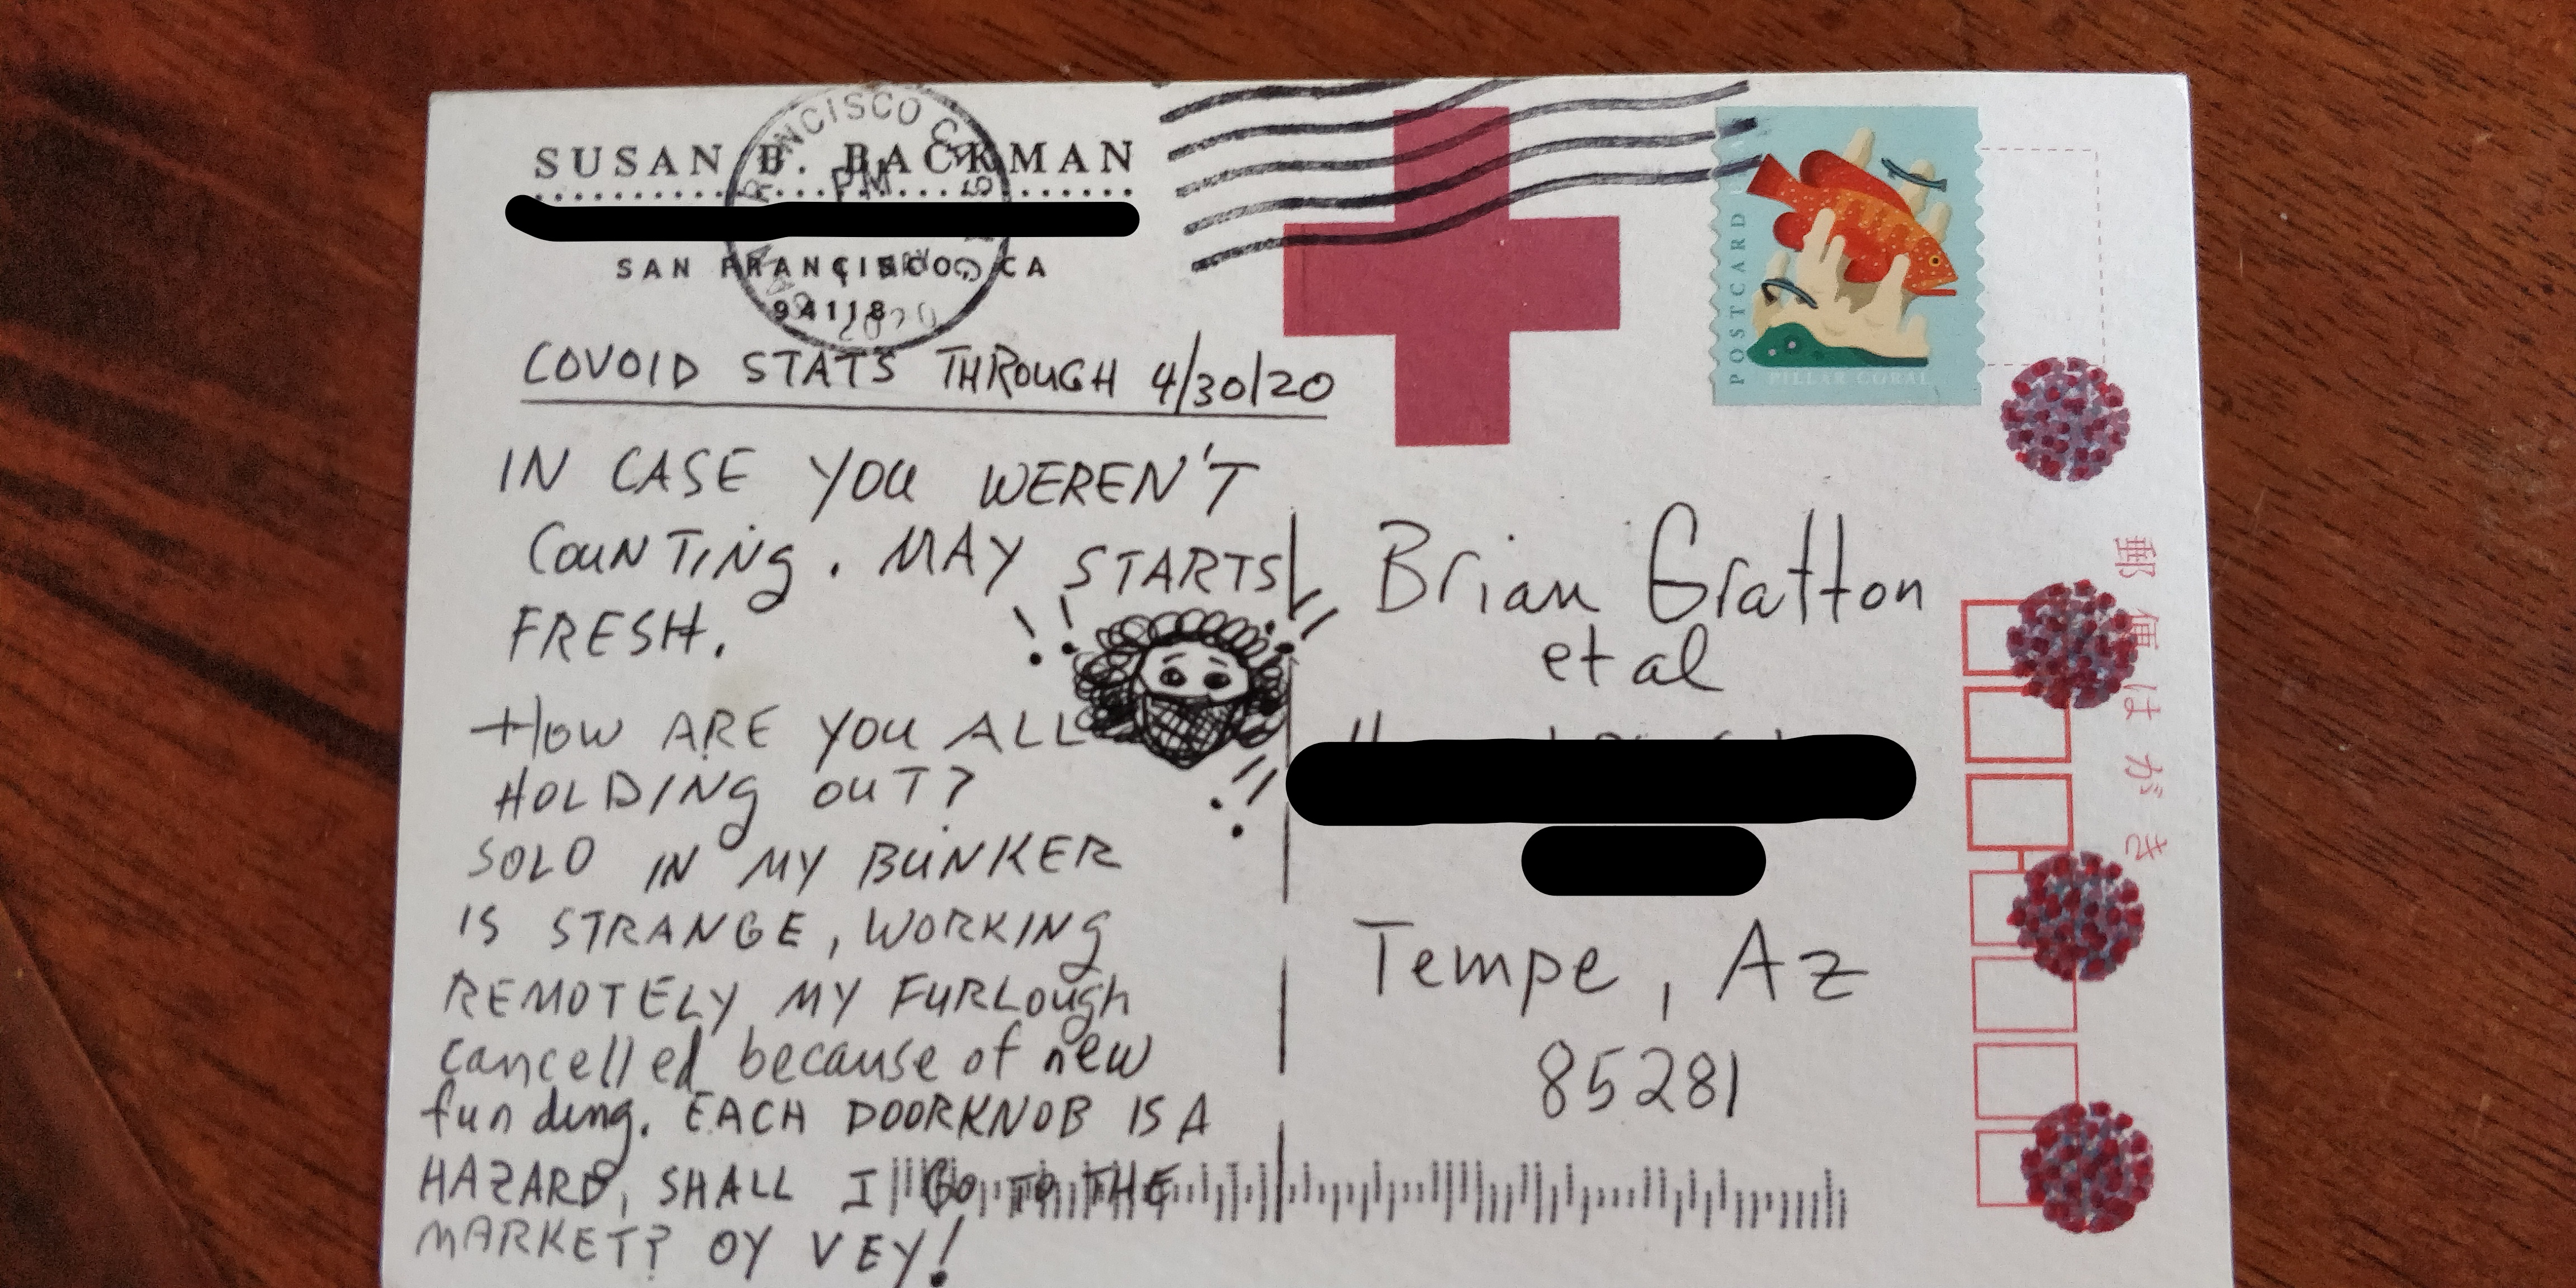 SUSAN B. BACKMAN
SAN FRANCISCO, CA
94118
SAN FRANCISCO CA
PM
2020
POSTCARD
PILLAR CORAL
COVOID STATS THROUGH 4/30/20
IN CASE YOU WEREN'T
COUNTING. MAY STARTS
FRESH.
HOW ARE YOU ALL
HOLDING OUT?
SOLO IN MY BUNKER
IS STRANGE, WORKING
REMOTELY MY FURLOUGH
cancelled because of new
funding. EACH DOORKNOB IS A
HAZARD, SHALL I GO TO THE
MARKET? OY VEY!
Brian Gratton
et al
Tempe, Az
85281
郵便はがき